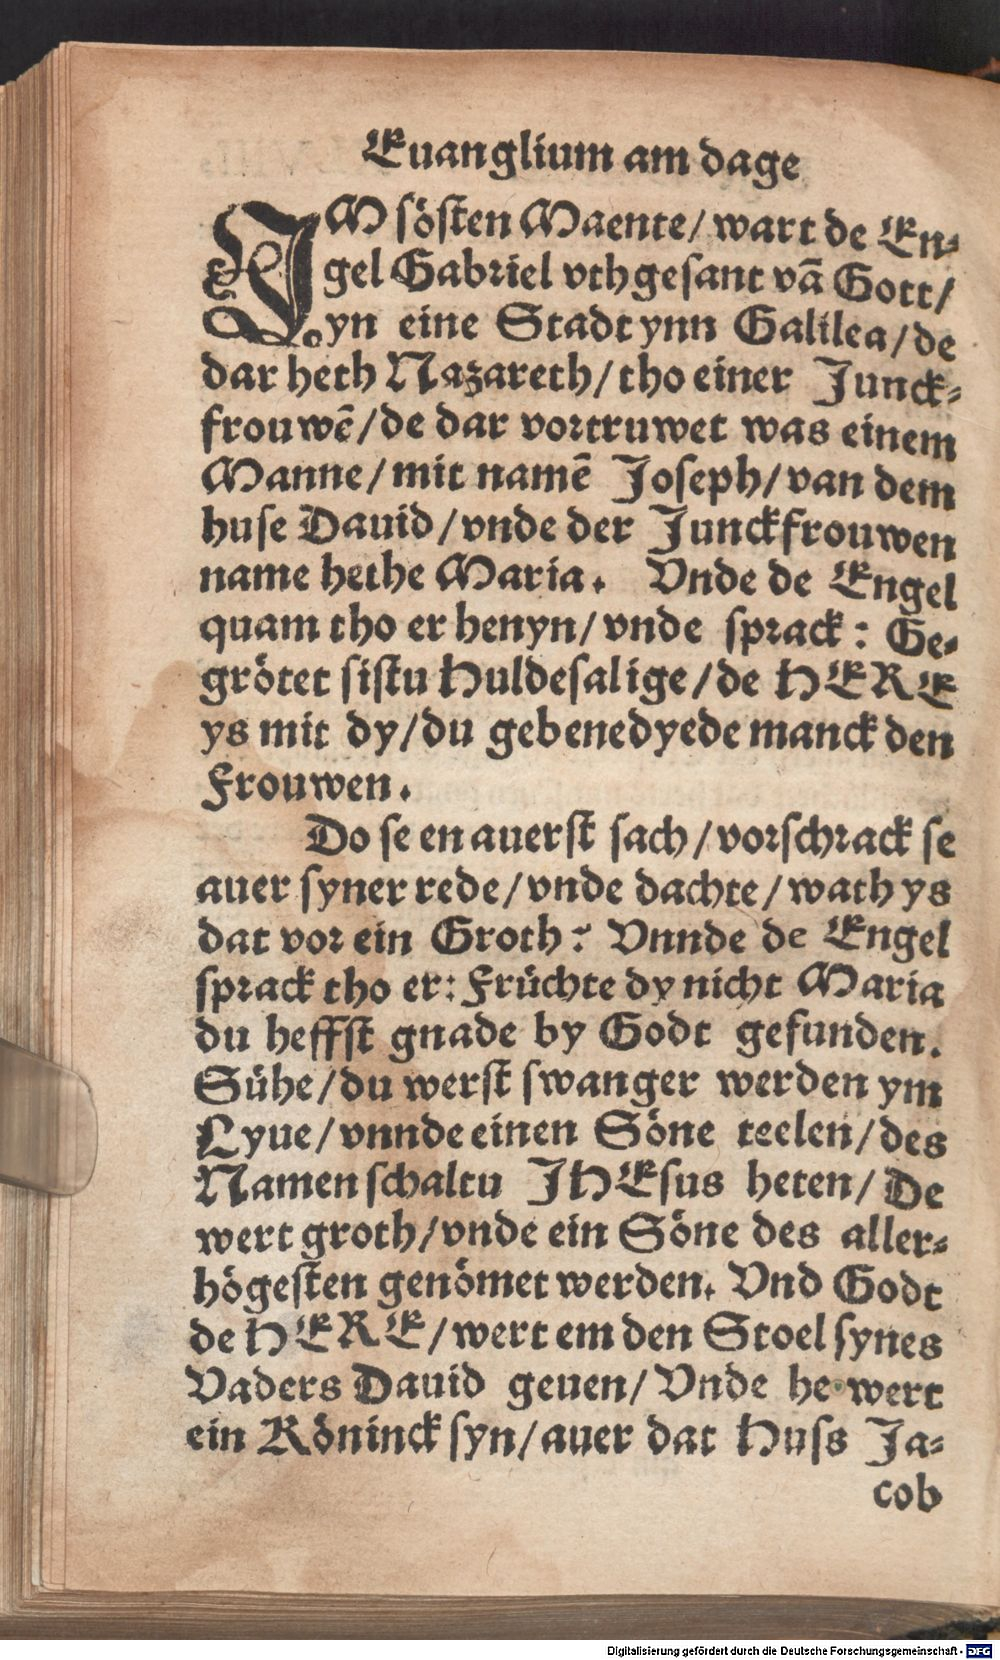 Euanglium am dage
IM sösten Maente/ wart de En-
gel Gabriel vthgesant vā Gott/
yn eine Stadt ynn Galilea/ de
dar heth Nazareth/ tho einer Junck-
frouwē/ de dar vortruwet was einem
Manne/ mit namē Joseph/ van dem
huse Dauid/ vnde der Junckfrouwen
name hethe Maria. Vnde de Engel
quam tho er henyn/ vnde sprack: Ge-
grötet sistu Huldesalige/ de HERE
ys mit dy/ du gebenedyede manck den
Frouwen.
Do se en auerst sach/ vorschrack se
auer syner rede/ vnde dachte/ wath ys
dat vor ein Groth? Vnnde de Engel
sprack tho er: Früchte dy nicht Maria
du heffst gnade by Godt gefunden.
Sühe/ du werst swanger werden ym
Lyue/ vnnde einen Söne teelen/ des
Namen schaltu JHEsus heten/ De
wert groth/ vnde ein Söne des aller-
högesten genömet werden. Vnd Godt
de HERE/ wert em den Stoel synes
Vaders Dauid geuen/ Vnde he wert
ein Köninck syn/ auer dat Huss Ja-
cob
Digitalisierung gefördert durch die Deutsche Forschungsgemeinschaft - DFG